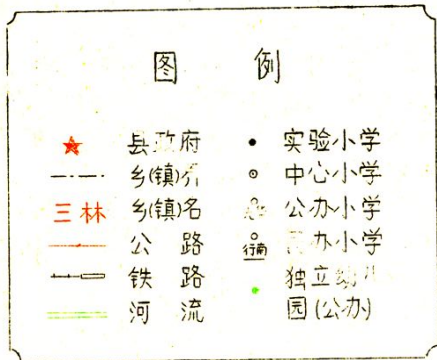 图 例
县政府
乡(镇)界
三林 乡(镇)名
公 路
铁 路
河 流
实验小学
中心小学
公办小学
行南 办小学
独立幼儿
园(公办)